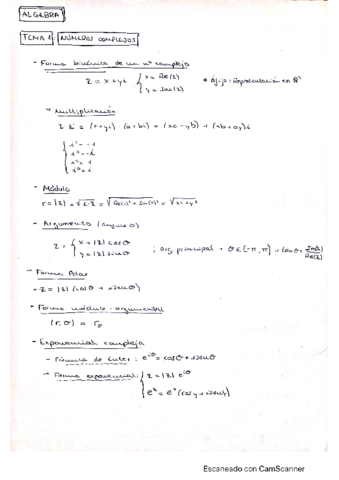 ALGEBRA
TEMA 1: NÚMEROS COMPLEJOS
- Forma binómica de un nº complejo
z = x + yi { x = Re(z)
y = Im(z)
* Afijo: Representación en R²
Multiplicación
z·z = (x+yi)·(a+bi) = (xa-yb) + (xb+ay)i
- Módulo
r = |z| = √z·z = √Re(z)²+Im(z)² = √x²+y²
- Argumento (ángulo θ)
z = { x = |z| cosθ
y = |z| sinθ
; arg principal → θ ∈ [-π, π] → tanθ = Im(z)/Re(z)
- Forma Polar
z = |z| (cosθ + i senθ)
- Forma módulo-argumental
(r, θ) = r_θ
- Exponencial compleja
- Fórmula de Euler: e^iθ = cosθ + i senθ
- Forma exponencial: { z = |z| e^iθ
e^z = e^x (cos y + i sen y)
Escaneado con CamScanner